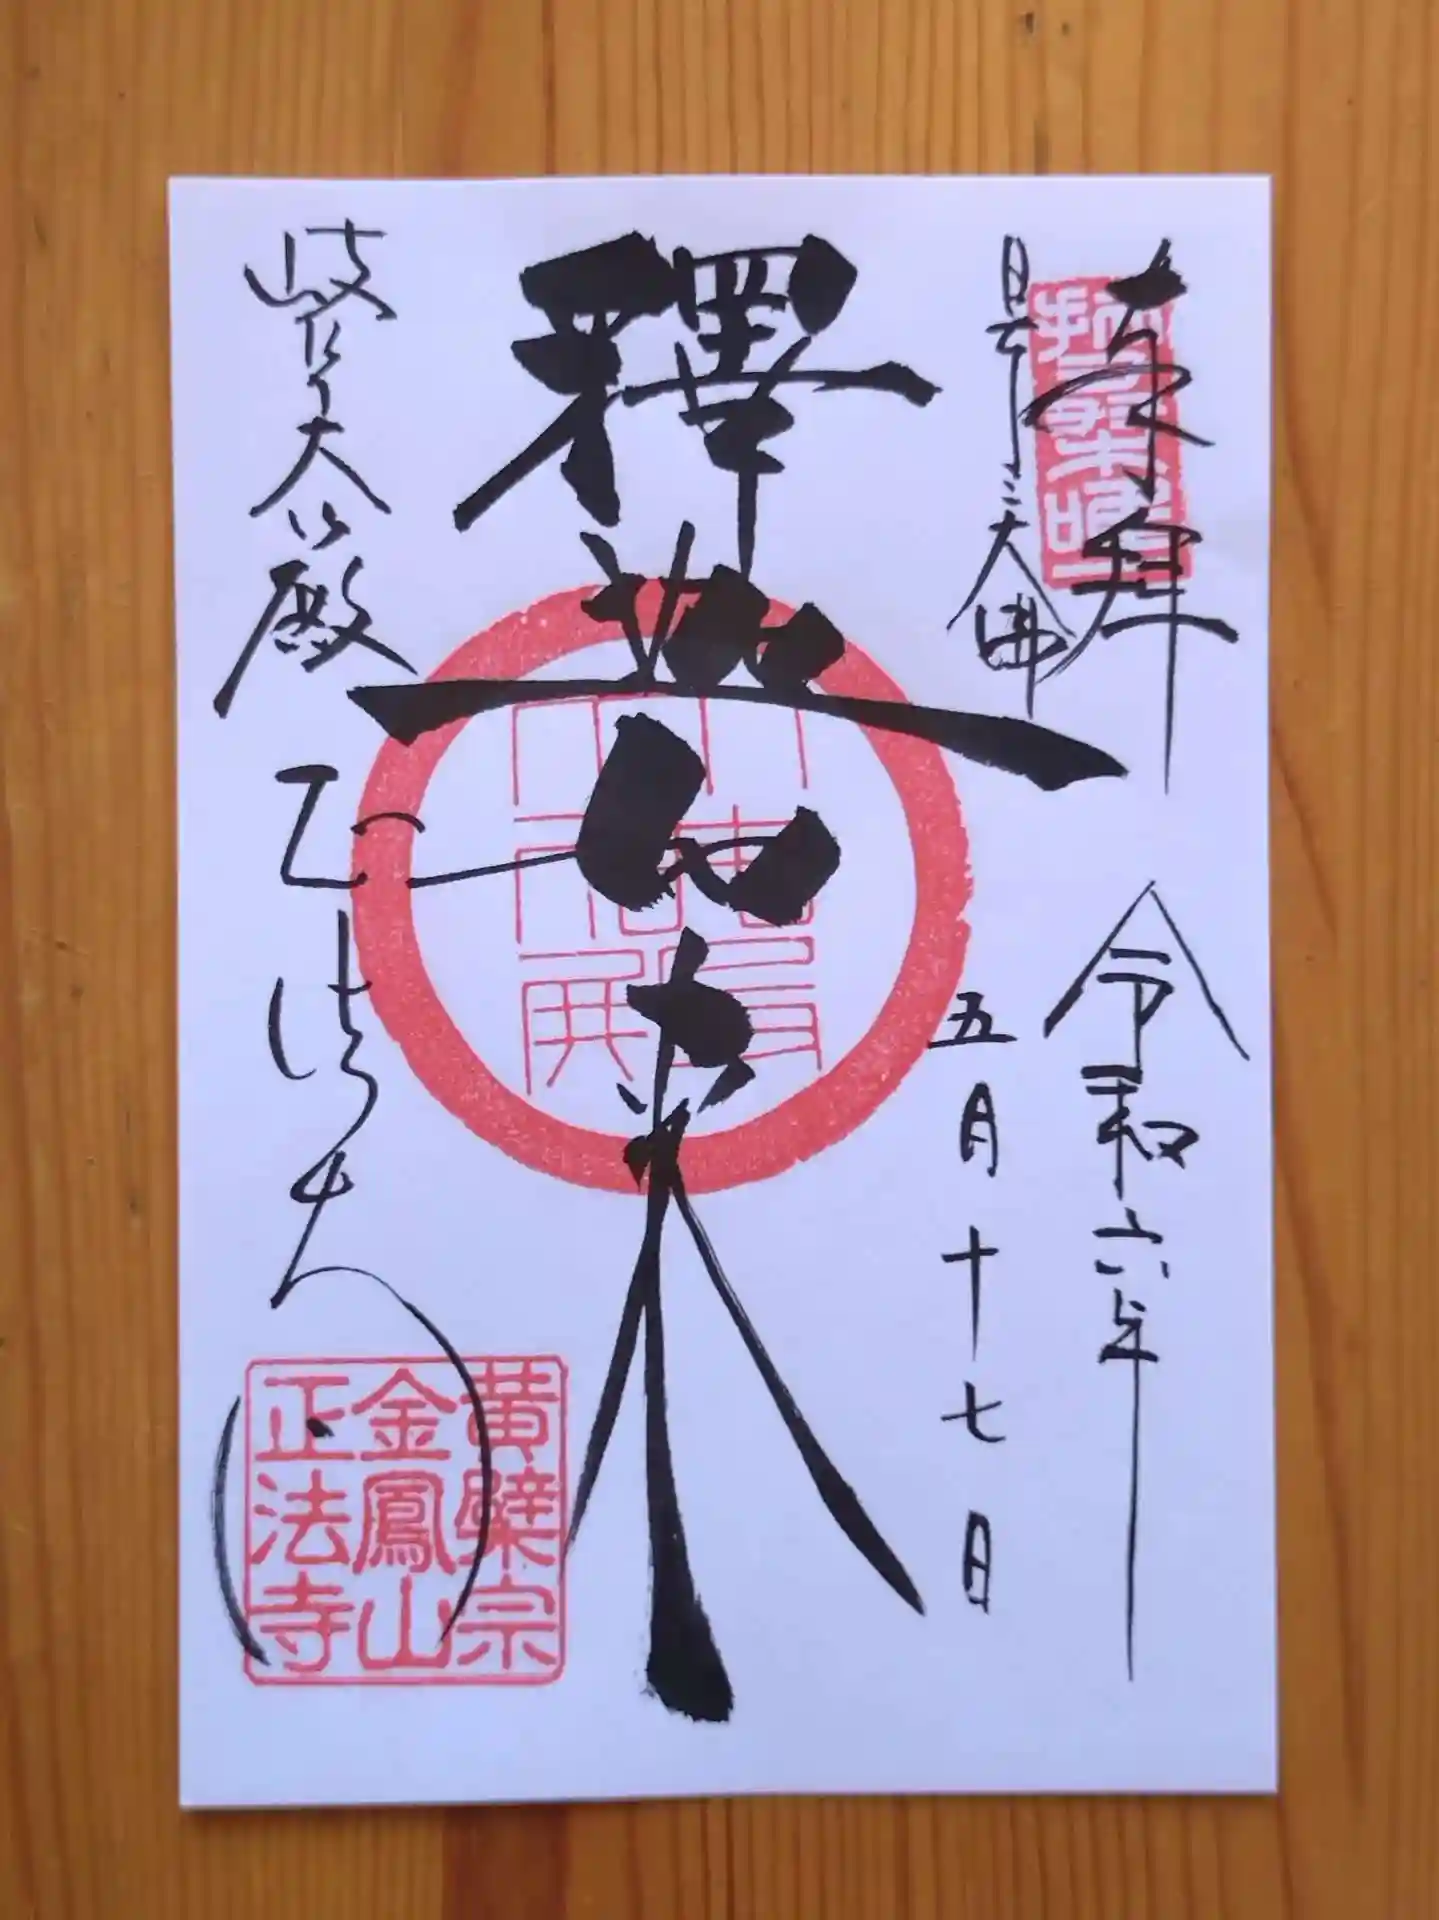 奉拝
日本三大佛
令和六年
五月十七日
釋迦如来
岐阜大仏殿
正法寺
黄檗宗
金鳳山
正法寺